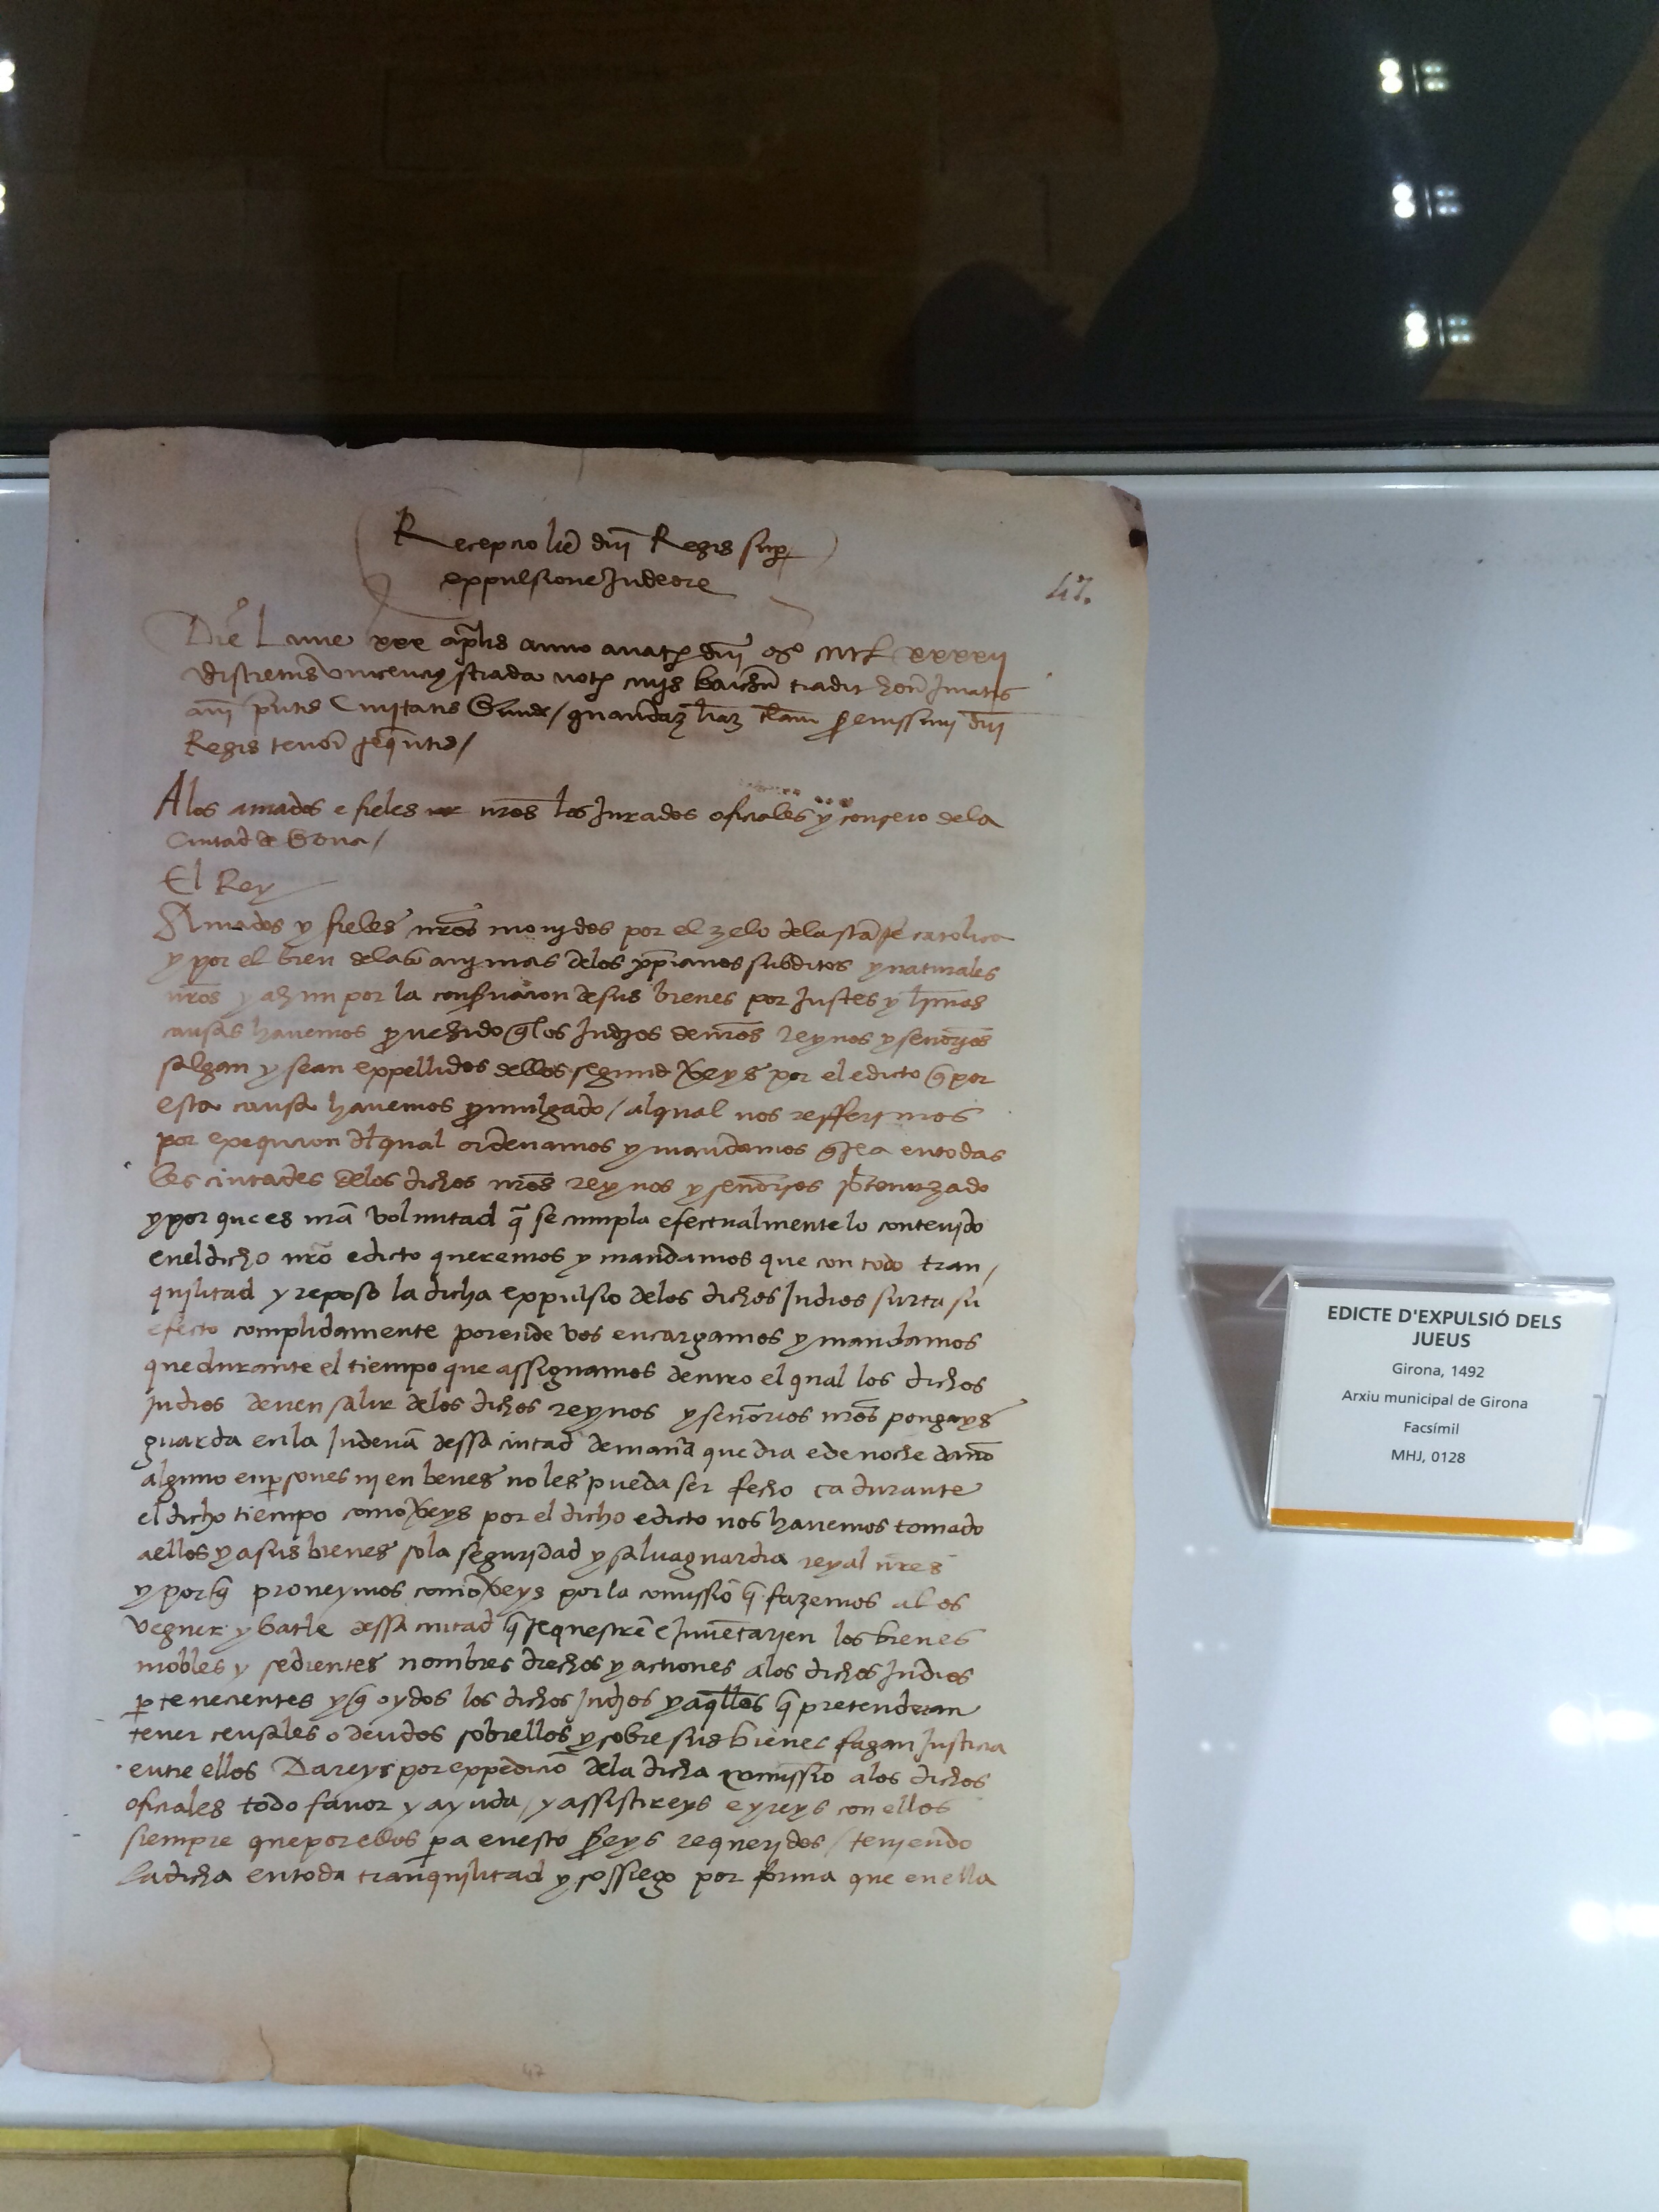 Recepcio lre dni Regis sup
expulsione Judeore
47.
Die Lune xxx aplis anno a natz dni mo cccc lxxxxii
discretus vincencius strada notz
Regis tenoris sequentis /
A los amados e fieles nros los Jurados oficiales y consejo dela
Ciutad de Gerona /
El Rey
Amados y fieles nros mouidos por el zelo dela sta fe catolica
y por el bien delas animas delos xpianos subditos y naturales
nros y ahun por la conseruacion de sus bienes por justes y ltimas
causas hauemos prouehido q los judios de nros reynos y senorios
salgan y sean expellidos dellos segund vereys por el edicto q por
esta causa hauemos promulgado / al qual nos refferimos
por exequcion del qual ordenamos y mandamos q sea en todas
las ciutades delos dichos nros reynos y senorios
y por que es nra voluntad q se cumpla efectualmente lo contenido
enel dicho nro edicto queremos y mandamos que con todo tran /
quilitad y reposo la dicha expulsio delos dichos Judios surta su
efecto complidamente porende vos encargamos y mandamos
que durante el tiempo que assignamos dentro el qual los dichos
judios deuen salir delos dichos reynos y senorios nros pongays
guarda en la Juderia dessa ciutad de mana que dia e de noche dano
alguno en psones ni en benes no les pueda ser fecho ca durante
el dicho tiempo como vereys por el dicho edicto nos hauemos tomado
a ellos y a sus bienes so la seguridad y saluaguardia reyal nres
y por q proueymos como vereys por la comissio q fazemos al os
veguer y batle dessa ciutad q sequestre e Inuetarien los bienes
mobles y sedientes nombres drechos y actiones alos dichos Judios
ptenecientes y q oydos los dichos judios y aqllos q pretenderan
tener censales o deudos sobrellos y sobre sus bienes fagan justicia
entre ellos Dareys por expedicio dela dicha comissio alos dichos
oficiales todo fauor y ayuda / y assistireys e yreys con ellos
siempre que por ellos pa en esto sereys requeridos / teniendo
la dicha en toda tranquilitad y sossiego por forma que en ella
47
EDICTE D'EXPULSIÓ DELS
JUEUS
Girona, 1492
Arxiu municipal de Girona
Facsímil
MHJ, 0128